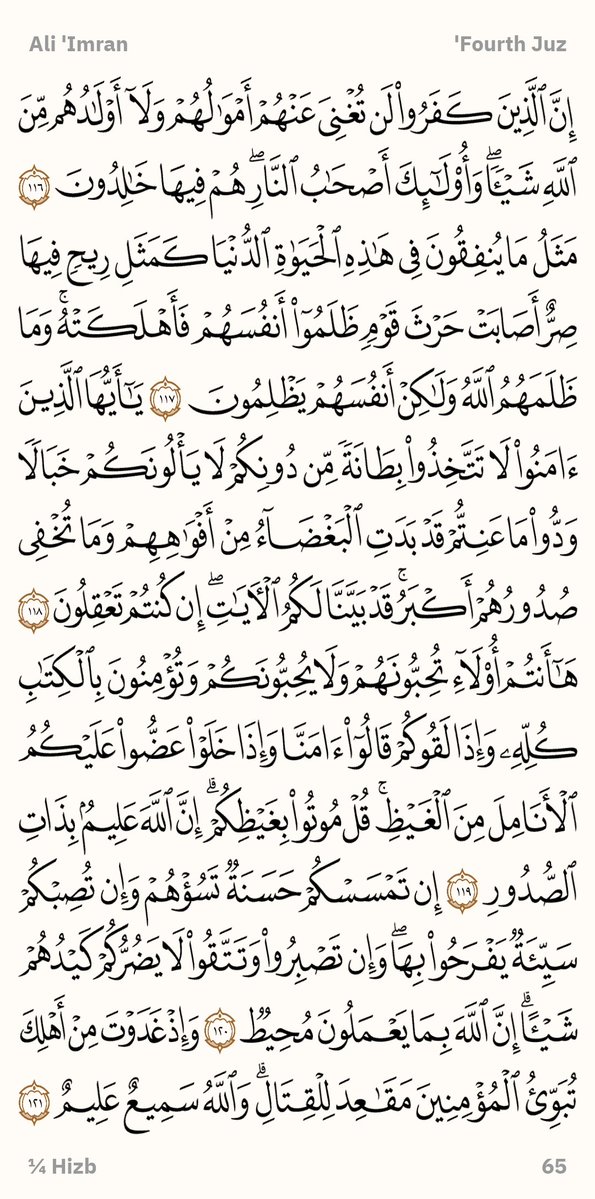 Ali 'Imran
'Fourth Juz
إِنَّ ٱلَّذِينَ كَفَرُوا۟ لَن تُغْنِىَ عَنْهُمْ أَمْوَٰلُهُمْ وَلَآ أَوْلَٰدُهُم مِّنَ
ٱللَّهِ شَيْـًٔا ۖ وَأُو۟لَٰٓئِكَ أَصْحَٰبُ ٱلنَّارِ ۖ هُمْ فِيهَا خَٰلِدُونَ ١١٦
مَثَلُ مَا يُنفِقُونَ فِى هَٰذِهِ ٱلْحَيَوٰةِ ٱلدُّنْيَا كَمَثَلِ رِيحٍ فِيهَا
صِرٌّ أَصَابَتْ حَرْثَ قَوْمٍ ظَلَمُوٓا۟ أَنفُسَهُمْ فَأَهْلَكَتْهُ ۚ وَمَا
ظَلَمَهُمُ ٱللَّهُ وَلَٰكِنْ أَنفُسَهُمْ يَظْلِمُونَ ١١٧ يَٰٓأَيُّهَا ٱلَّذِينَ
ءَامَنُوا۟ لَا تَتَّخِذُوا۟ بِطَانَةً مِّن دُونِكُمْ لَا يَأْلُونَكُمْ خَبَالًا
وَدُّوا۟ مَا عَنِتُّمْ قَدْ بَدَتِ ٱلْبَغْضَآءُ مِنْ أَفْوَٰهِهِمْ وَمَا تُخْفِى
صُدُورُهُمْ أَكْبَرُ ۚ قَدْ بَيَّنَّا لَكُمُ ٱلْـَٔايَٰتِ ۖ إِن كُنتُمْ تَعْقِلُونَ ١١٨
هَٰٓأَنتُمْ أُو۟لَآءِ تُحِبُّونَهُمْ وَلَا يُحِبُّونَكُمْ وَتُؤْمِنُونَ بِٱلْكِتَٰبِ
كُلِّهِۦ وَإِذَا لَقُوكُمْ قَالُوٓا۟ ءَامَنَّا وَإِذَا خَلَوْا۟ عَضُّوا۟ عَلَيْكُمُ
ٱلْأَنَامِلَ مِنَ ٱلْغَيْظِ ۚ قُلْ مُوتُوا۟ بِغَيْظِكُمْ ۗ إِنَّ ٱللَّهَ عَلِيمٌۢ بِذَاتِ
ٱلصُّدُورِ ١١٩ إِن تَمْسَسْكُمْ حَسَنَةٌ تَسُؤْهُمْ وَإِن تُصِبْكُمْ
سَيِّئَةٌ يَفْرَحُوا۟ بِهَا ۖ وَإِن تَصْبِرُوا۟ وَتَتَّقُوا۟ لَا يَضُرُّكُمْ كَيْدُهُمْ
شَيْـًٔا ۗ إِنَّ ٱللَّهَ بِمَا يَعْمَلُونَ مُحِيطٌ ١٢٠ وَإِذْ غَدَوْتَ مِنْ أَهْلِكَ
تُبَوِّئُ ٱلْمُؤْمِنِينَ مَقَٰعِدَ لِلْقِتَالِ ۗ وَٱللَّهُ سَمِيعٌ عَلِيمٌ ١٢١
¼ Hizb
65